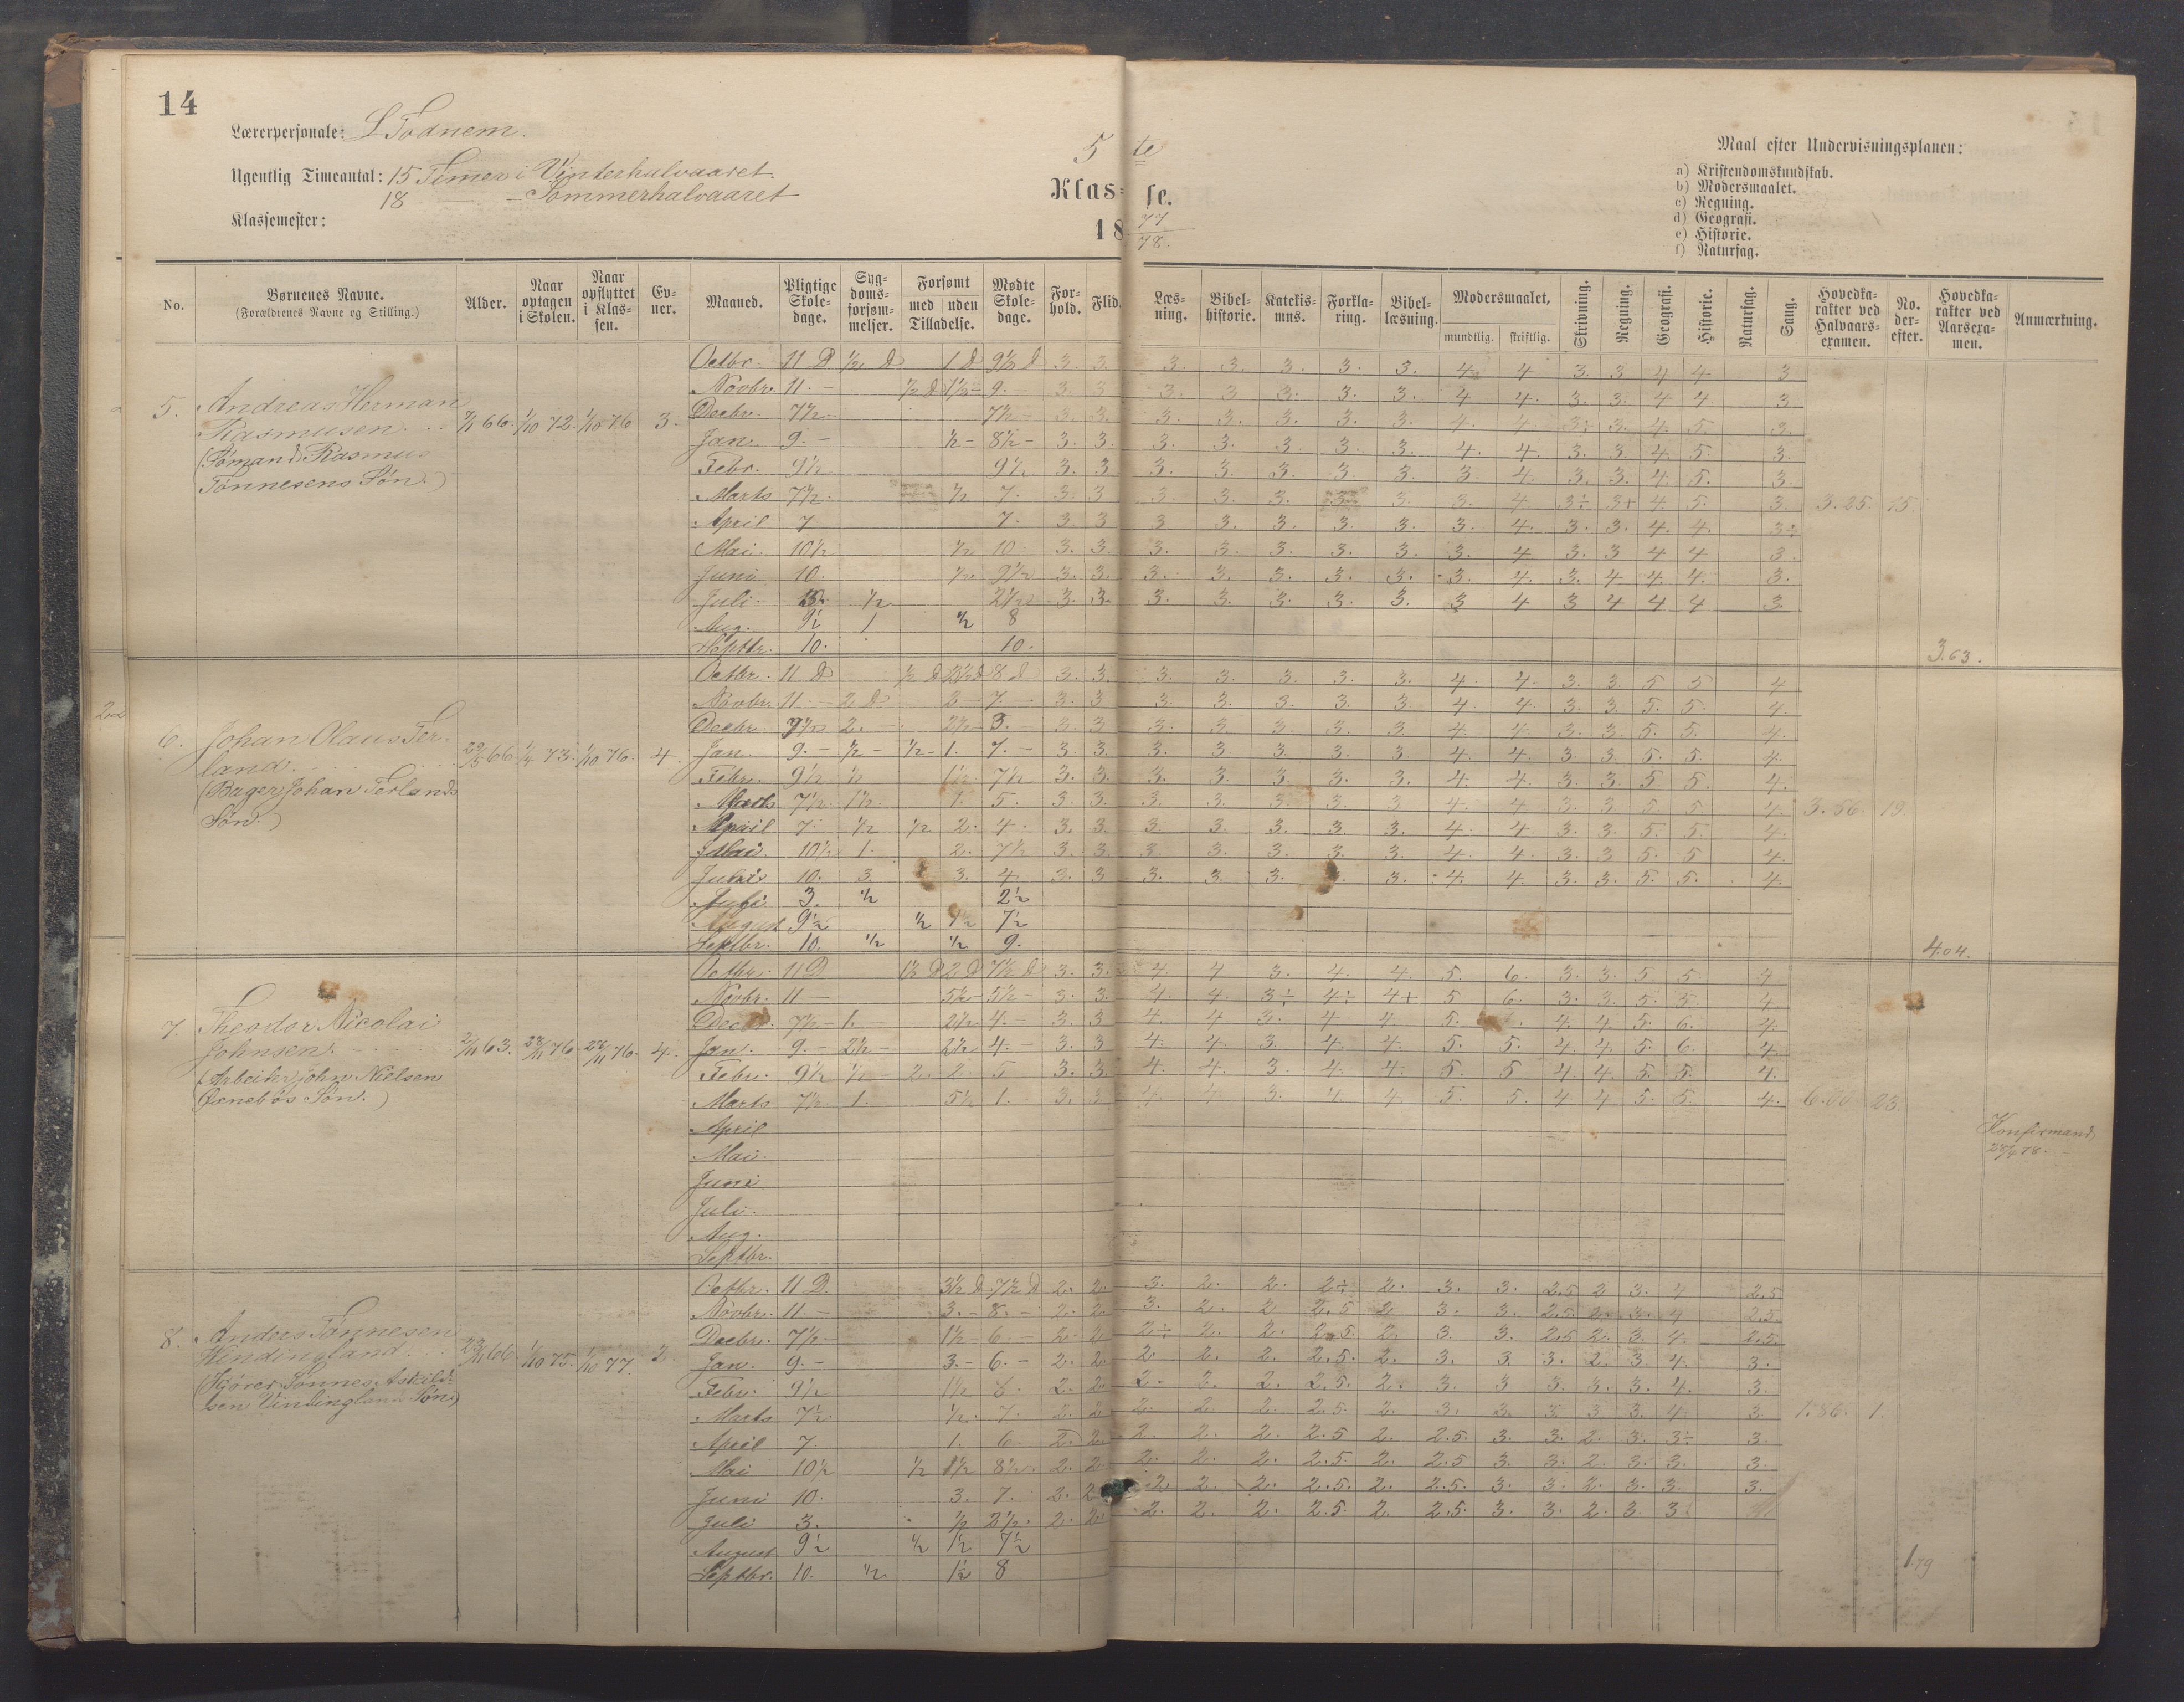 14
Lærerpersonale: L Todnem.
Ugentlig Timeantal: 15 Timer i Vinterhalvaaret.
18 — - Sommerhalvaaret
Klassemester:
5 te
Klas- se.
18 77
78.
Maal efter Undervisningsplanen:
a) Kristendomskundskab.
b) Modersmaalet.
c) Regning.
d) Geografi.
e) Historie.
f) Naturfag.
No. Børnenes Navne. (Forældrenes Navne og Stilling.) Alder. Naar optagen i Skolen. Naar opflyttet i Klassen. Evner. Maaned. Pligtige Skoledage. Sygdomsforsømmelser. Forsømt med uden Tilladelse. Mødte Skoledage. Forhold. Flid. Læsning. Bibelhistorie. Katekismus. Forklaring. Bibellæsning. Modersmaalet, mundtlig. skriftlig. Skrivning. Regning. Geografi. Historie. Naturfag. Sang. Hovedkarakter ved Halvaarsexamen. No. derefter. Hovedkarakter ved Aarsexamen. Anmærkning.
5. Andreas Herman
Rasmusen.
(Sømand Rasmus
Tønnesens Søn.)
1/10 72. 1/10 76 3.
Octbr. 11 D ½ D 1 D 9½ D 3. 3. 3. 3. 3. 3. 3. 4. 4 3. 3 4 4 3
Novbr. 11. - ½ D 1½ - 9. - 3. 3 3. 3 3. 3. 3. 4 4. 3. 3. 4 4 3.
Decbr. 7½ - 7½ - 3. 3. 3. 3. 3. 3. 3. 4. 4. 3÷ 3. 4. 5. 3.
Jan. 9. - ½ - 8½ - 3. 3. 3. 3. 3. 3. 3. 4. 4. 3. 3. 4. 5. 3.
Febr. 9½ 9½ 3. 3 3. 3. 3. 3. 3. 3. 4. 3. 3. 4. 5. 3.
Marts 7½. ½ 7. 3. 3 3. 3. 3. 3. 3. 3. 4. 3÷ 3+ 4. 5. 3. 3.25. 15.
April 7 7. 3. 3 3 3. 3. 3. 3. 3. 4. 3. 3. 4. 4. 3÷
Mai. 10½ ½ 10. 3. 3. 3. 3. 3. 3. 3. 3. 4 3. 3 4 4 3.
Juni 10. ½ 9½ 3. 3. 3. 3. 3. 3. 3. 3. 4. 3. 4. 4. 4. 3.
Juli. 3. ½ 2½ 3. 3. 3. 3. 3. 3. 3. 3 4 3 4 4 4 3.
Aug. 9½ 1 ½ 8
Septbr. 10. 10.
3.63.
6. Johan Olaus Ter-
land.
(Bager Johan Terlands
Søn.)
1/10 76. 4.
Octbr. 11 D ½ D 2½ D 8 D 3. 3. 3. 3. 3. 3. 3. 4 4. 3. 3. 5 5 4
Novbr. 11. - 2 D 2 - 7. - 3. 3 3. 3. 3. 3. 3. 4 4. 3. 3. 5. 5. 4.
Decbr. 7½ 2. - 2½ - 3. - 3. 3 3. 3. 3. 3. 3. 4. 4. 3. 3. 5. 5. 4.
Jan. 9. - ½ - ½ - 1. 7. - 3. 3. 3. 3. 3. 3. 3. 4. 4. 3. 3. 5. 5. 4.
Febr. 9½ ½ 1½ 7½ 3. 3. 3. 3. 3. 3. 3. 4. 4. 3. 3. 5 5. 4.
Marts 7½. 1½. 1. 5. 3. 3. 3. 3. 3. 3. 3. 4. 4 3. 3. 5 5. 4. 3.56. 19.
April 7. ½ ½ 2. 4. 3. 3. 3. 3. 3. 3. 3. 4. 4 3. 3. 5. 5. 4.
Mai. 10½ 1. 2. 7½ 3. 3. 3. 3. 3. 3. 3. 4. 4. 3. 3. 5. 5 4.
Juni 10. 3. 3. 4. 3. 3 3. 3. 3. 3. 4. 4. 3. 3. 5. 5. 4.
Juli 3. ½ 2½
August 9½ ½ 1½ 7½
Septbr. 10. ½ ½ 9.
4.04.
7. Theodor Nicolai
Johnsen.
(Arbeider John Nielsen
Søn.)
28/11 76 28/11 76. 4.
Octbr. 11 D 1½ D 2 D 7½ D 3. 3. 4. 4 3. 4. 4. 5 6. 3. 3. 5 5. 4
Novbr. 11 - 5½ - 5½ - 3. 3. 4. 4. 3÷ 4÷ 4+ 5 6. 3. 3. 5. 5. 4.
Decbr. 7½ - 1. - 2½ - 4. - 3. 3 4. 4 3. 4 4 5. 4. 4. 5 6. 4.
Jan. 9. - 2½ - 2½ 4. - 3. 3 4. 4. 3. 4. 4. 5. 5. 4. 4. 5 6. 4.
Febr. 9½ ½ - 2. 2. 5 3. 3. 4. 4. 3. 4. 4. 5. 5 4. 4. 5. 5. 4.
Marts 7½. 1. 5½ 1. 3. 3 4 4 3. 4 4. 5. 5. 4 4 5. 5. 4. 6.00. 23.
April
Mai.
Juni
Juli.
Aug.
Septbr.
Konfirmand,
28/4 78.
8. Anders Tønnesen
Vindingland.
(Kjører Tønnes Askild-
sen Vindinglands Søn)
1/10 75. 1/10 77. 2.
Octbr. 11 D. 3½ D. 7½ D 2. 2. 3. 2. 2. 2÷ 2. 3. 3. 2.5 2 3. 4 2.5
Novbr. 11. - 3. - 8. - 2. 2. 3. 2. 2 2.5 2 3. 3. 2.5. 2. 3. 4 2.5.
Decbr. 7½ - 1½ - 6. - 2. 2 2÷ 2. 2. 2.5. 2. 3. 3. 2.5 2. 3. 4. 2.5.
Jan. 9. - 3. - 6. - 2. 2. 2. 2. 2. 2.5. 2. 3. 3. 3. 2. 3. 4. 3.
Febr. 9½ 1½ 8. 2. 2. 2. 2. 2. 2.5. 2. 3. 3 3. 3. 3. 4. 3.
Marts 7½ ½. 7. 2. 2 2. 2. 2. 2.5. 2. 3. 3. 3. 3. 3. 4. 3. 1.86. 1.
April 7. 1. 6. 2. 2. 2. 2. 2. 2.5 2. 2.5. 3. 3. 2. 3. 3÷ 3.
Mai 10½ ½ 1½ 8½. 2. 2. 2. 2. 2. 2.5. 2. 2.5 3. 3. 2. 3. 3. 3.
Juni 10. 3. 7. 2. 2 2. 2. 2. 2.5. 2. 2.5. 3. 3. 2. 3. 3. 3.
Juli 3. ½ 2½. 2. 2. 2. 2. 2. 2.5. 2. 2.5. 3. 3. 2. 3. 3.
August 9½ ½ 1½ 7½
Septbr. 10. ½ 1½ 8
1.79